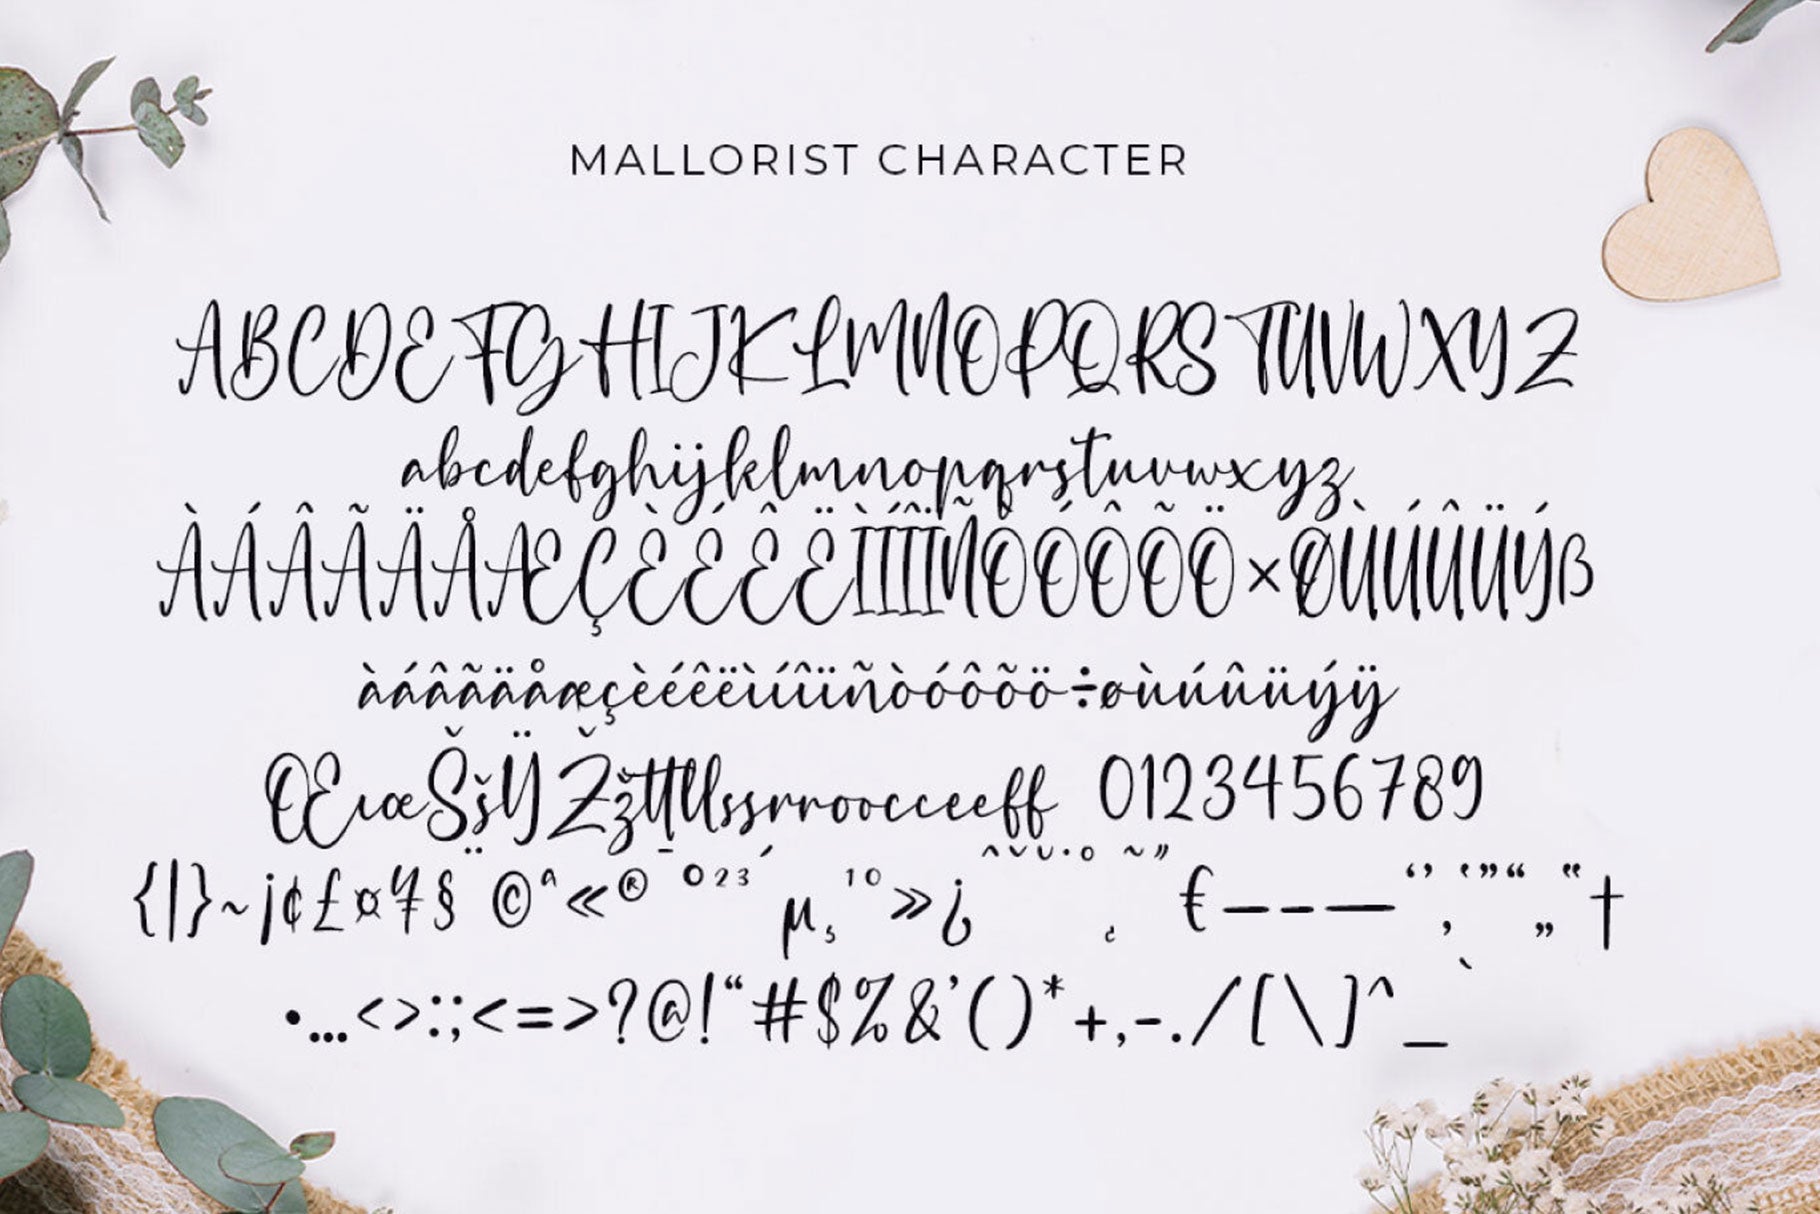 MALLORIST CHARACTER
ABCDEFGHIJKLMNOPQRSTUVWXYZ
abcdefghijklmnopqrstuvwxyz
ÀÁÂÃÄÅÆÇÈÉÊËÌÍÎÏÑÒÓÔÕÖ×ØÙÚÛÜÝß
àáâãäåæçèéêëìíîïñòóôõö÷øùúûüýÿ
ŒıœŠšŸŽžttllssrroocceeff 0123456789
{|}~¡¢£¤¥§¨©ª«®¯°²³´µ¸¹º»¿ˆˇ˘˙˚˛˜˝€–-—‘’‚‛”“„‟†
•…‹›:;<=>?@!“#$%&'()*+,-./[\]^_`